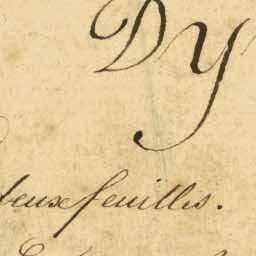 Dy
deux feuilles.